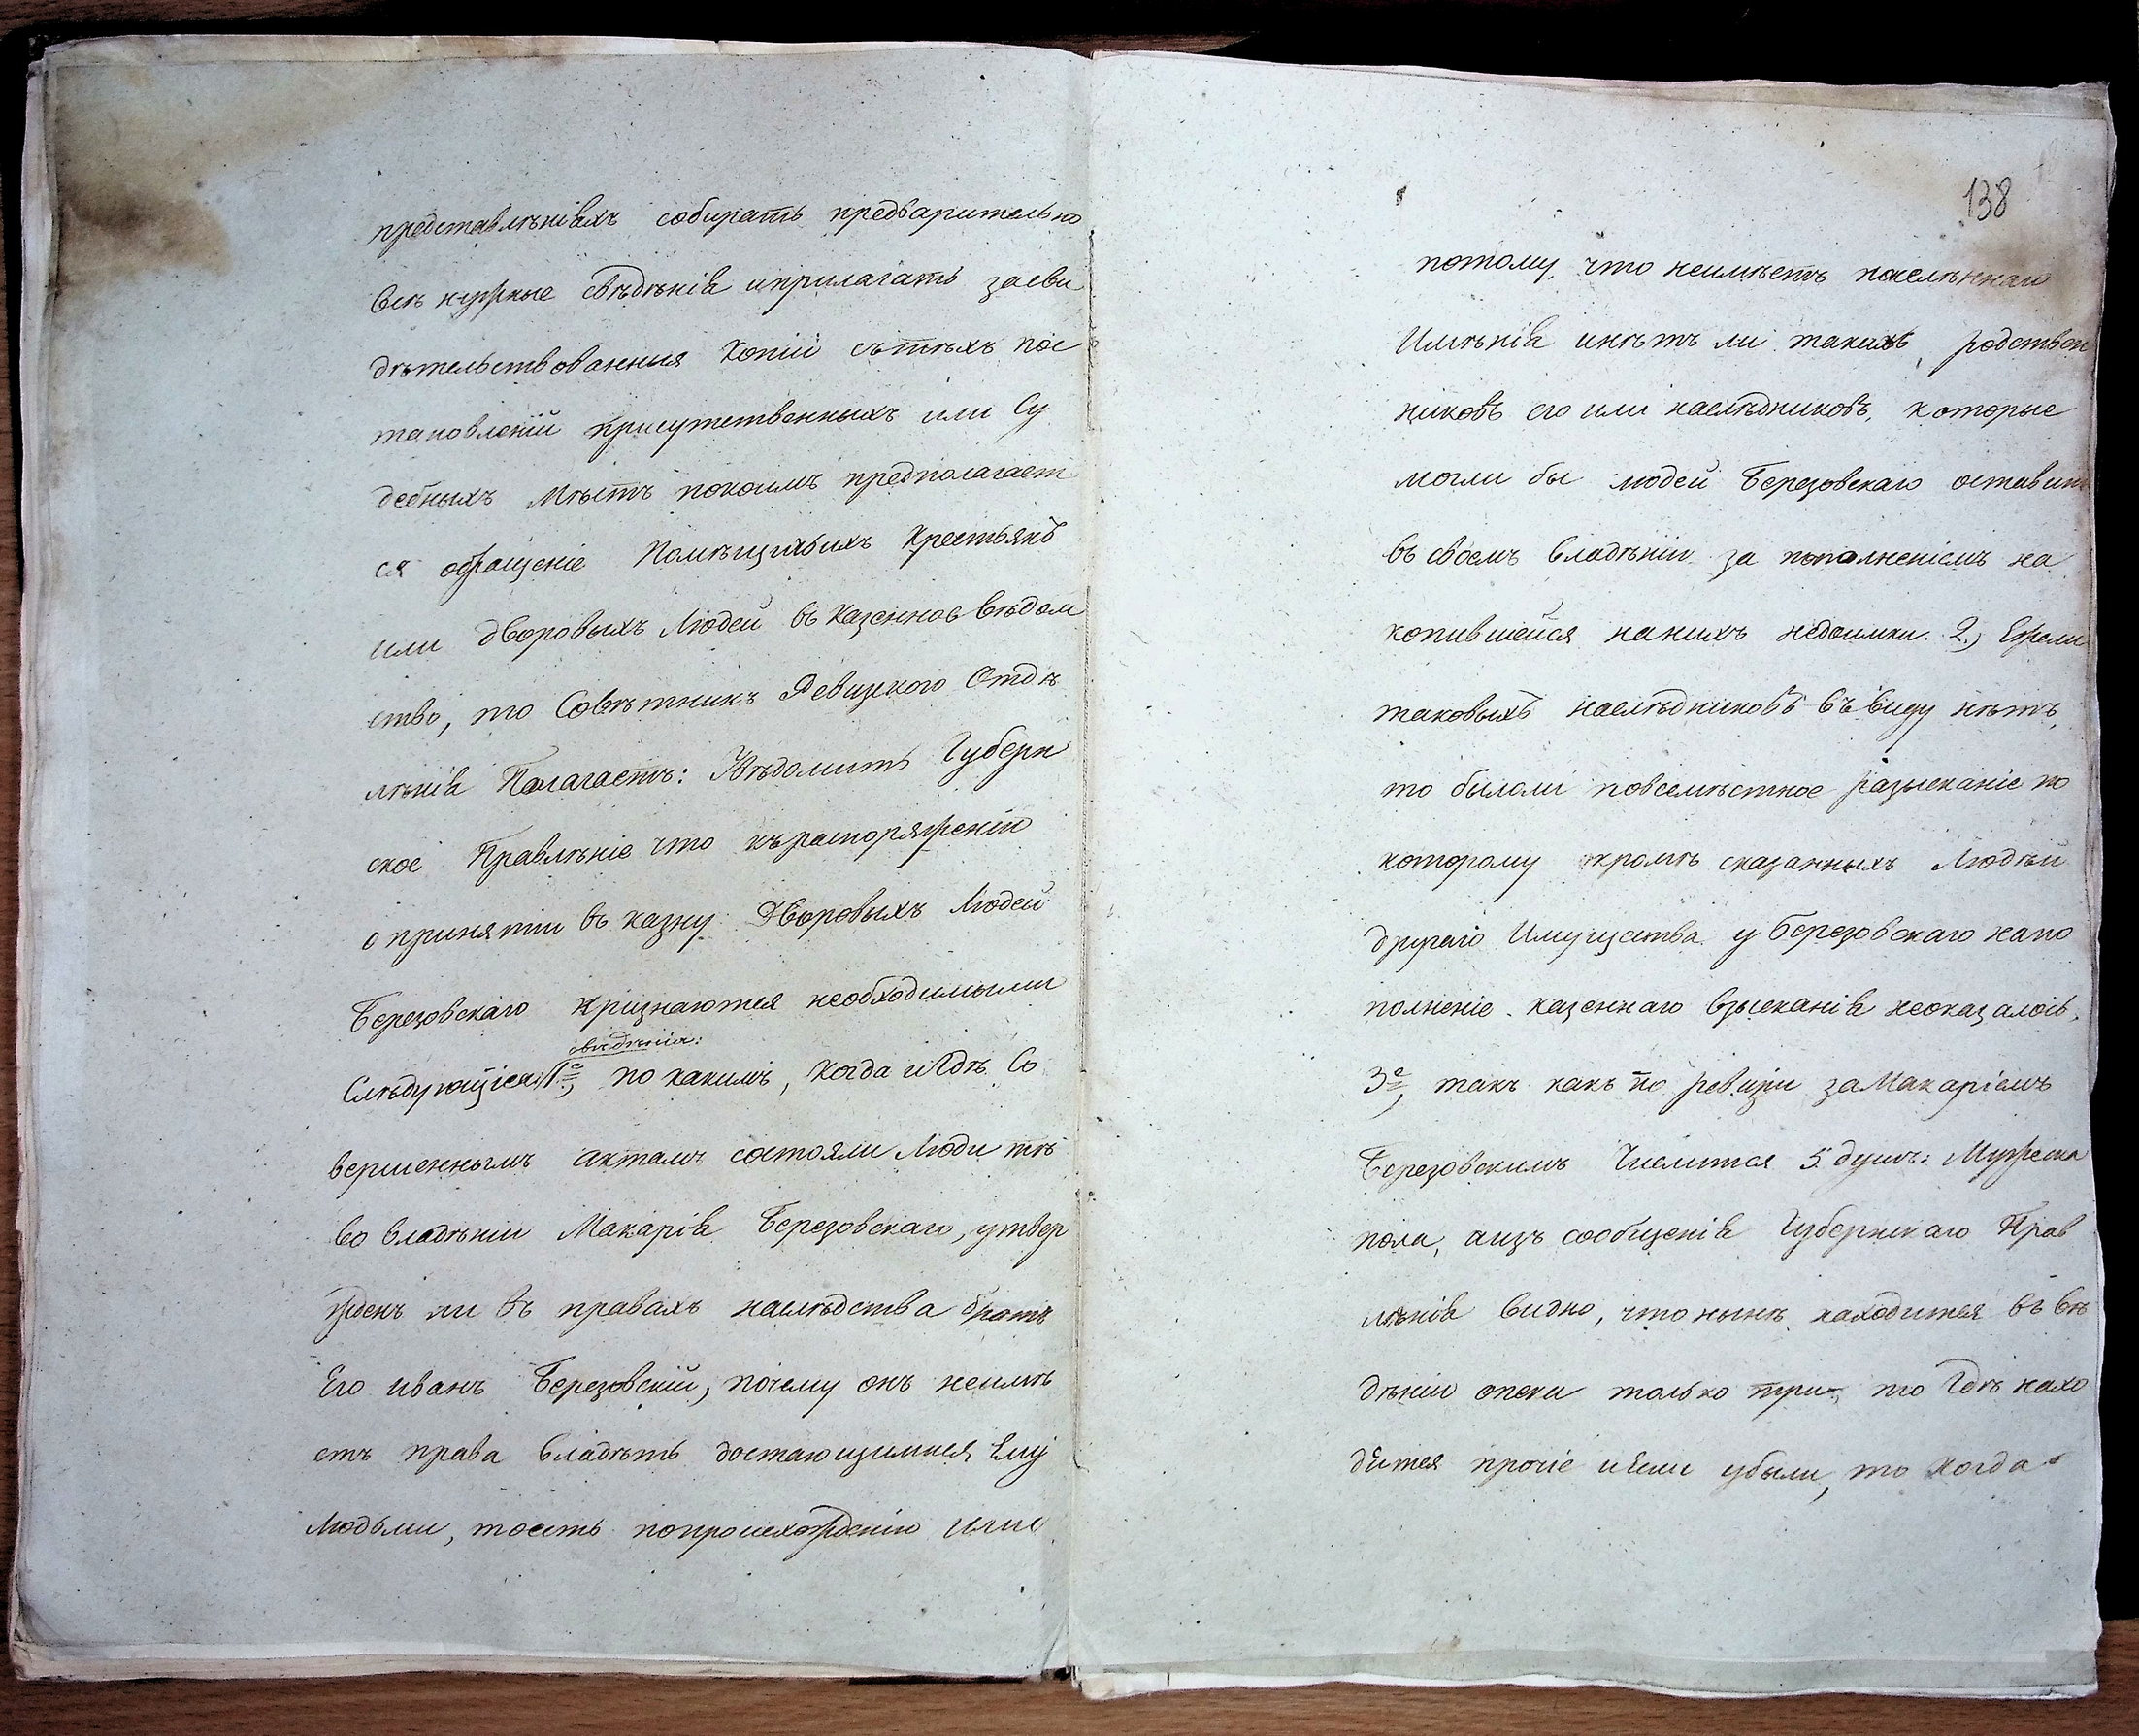 представлѣніяхъ собирать предварительно
всѣ нужные свѣдѣнія иприлагать засви
дѣтельствованныя Копіи сътѣхъ пос
тановленій присутственныхъ или Су
дебныхъ Мѣстъ покоимъ предполагает
ся обращеніе Помѣщичьихъ Крестьянъ
или дворовыхъ Людей въ Казенное вѣдом
ство, то Совѣтникъ Ревизкого Отдѣ
лѣнія Полагаетъ: Увѣдомить Губерн
ское Правлѣніе что къраспоряженію
о принятіи въ казну Дворовыхъ Людей
Березовскаго признаются необходимыми
свѣдѣнія:
Слѣдующіея: 1е, по какимъ, когда игдѣ Со
вершеннымъ актамъ состояли Люди тѣ
во владѣніи Макарія Березовскаго, утвер
жденъ ли въ правахъ наслѣдства братъ
Его иванъ Березовскій, почему онъ неимѣ
етъ права владѣть достающимися Ему
Людьми, тоесть попроисхожденію или
138
потому, что неимѣетъ населѣннаго
Имѣнія инѣтъ ли такихъ, родствен
никовъ его или наслѣдниковъ, которые
могли бы людей Березовскаго оставить
въ своемъ владѣніи за пополненіемъ на
копившейся нанихъ недоимки. 2.) Ежели
таковыхъ наслѣдниковъ въвиду нѣтъ,
то былоли повсемѣстное разысканіе по
которому кромѣ сказанныхъ Людѣй
другаго Имущества у Березовскаго напо
полненіе казеннаго взысканія неоказалось,
3е, такъ какъ по ревизіи заМакаріемъ
Березовскимъ Числится 5 душъ: Мужеска
пола, аизъ сообщенія Губернскаго Прав
лѣнія видно, что нынѣ находится въ вѣ
дѣніи опеки только три, то Гдѣ нахо
дятся прочіе иЕсли убыли, то когда